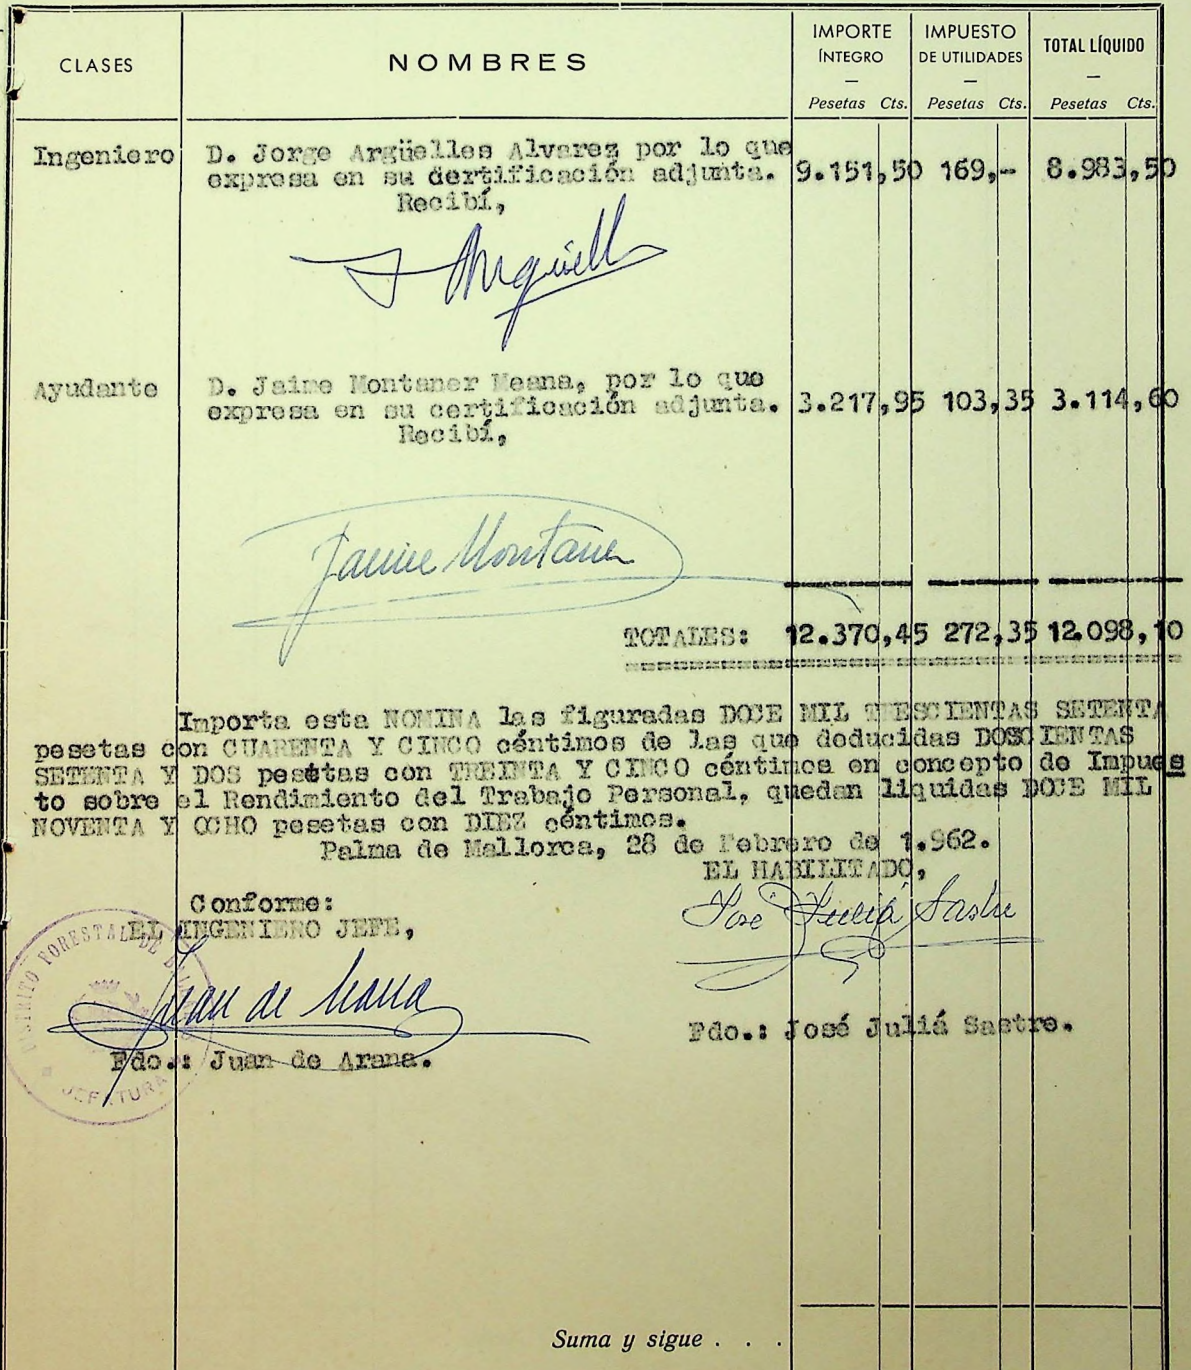 CLASES NOMBRES IMPORTE ÍNTEGRO — Pesetas Cts. IMPUESTO DE UTILIDADES — Pesetas Cts. TOTAL LÍQUIDO — Pesetas Cts.
Ingeniero D. Jorge Argüelles Alvarez por lo que
expresa en su dertificación adjunta. 9.151,50 169,- 8.983,50
Recibí,
J Arguell
Ayudante D. Jaime Montaner Meana, por lo que
expresa en su certificación adjunta. 3.217,95 103,35 3.114,60
Recibí,
Jaime Montaner
TOTALES: 12.370,45 272,35 12.098,10
Importa esta NOMINA las figuradas DOCE MIL TRESCIENTAS SETENTA
pesetas con CUARENTA Y CINCO céntimos de las que deducidas DOSCIENTAS
SETENTA Y DOS pesetas con TREINTA Y CINCO céntimos en concepto de Impues
to sobre el Rendimiento del Trabajo Personal, quedan liquidas DOCE MIL
NOVENTA Y OCHO pesetas con DIEZ céntimos.
Palma de Mallorca, 28 de Febrero de 1.962.
EL HABILITADO,
Conforme:
EL INGENIERO JEFE,
José Juliá Sastre
DISTRITO FORESTAL DE
Juan de Arana
Fdo.: José Juliá Sastre.
Fdo.: Juan de Arana.
JEFATURA
Suma y sigue . . .